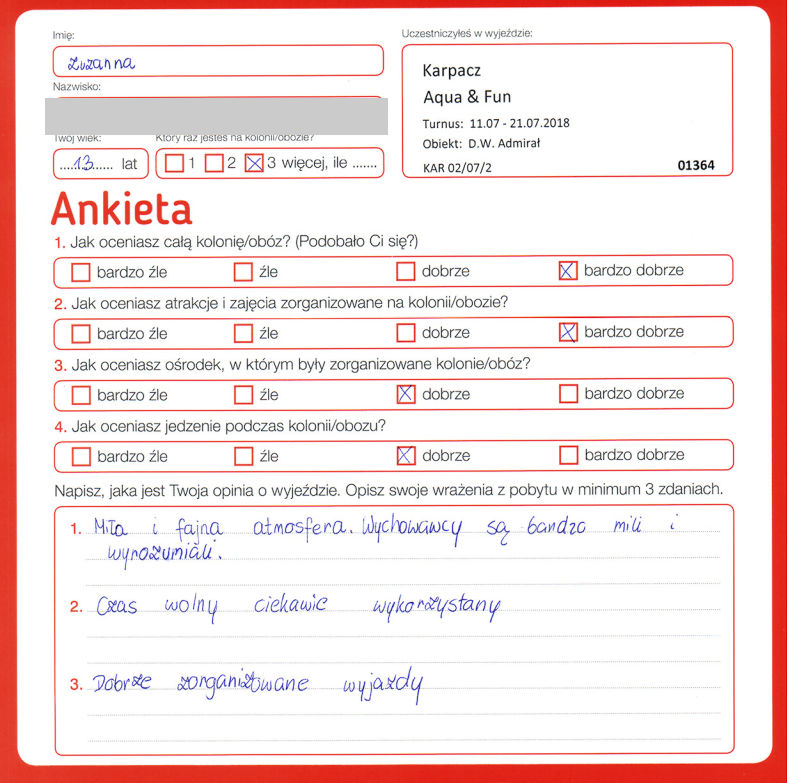 Imię:
Zuzanna
Nazwisko:
Twój wiek:
Który raz jesteś na kolonii/obozie?
.....13...... lat
1 2 3 więcej, ile .......
Uczestniczyłeś w wyjeździe:
Karpacz
Aqua & Fun
Turnus: 11.07 - 21.07.2018
Obiekt: D.W. Admirał
KAR 02/07/2 01364
Ankieta
1. Jak oceniasz całą kolonię/obóz? (Podobało Ci się?)
bardzo źle źle dobrze bardzo dobrze
2. Jak oceniasz atrakcje i zajęcia zorganizowane na kolonii/obozie?
bardzo źle źle dobrze bardzo dobrze
3. Jak oceniasz ośrodek, w którym były zorganizowane kolonie/obóz?
bardzo źle źle dobrze bardzo dobrze
4. Jak oceniasz jedzenie podczas kolonii/obozu?
bardzo źle źle dobrze bardzo dobrze
Napisz, jaka jest Twoja opinia o wyjeździe. Opisz swoje wrażenia z pobytu w minimum 3 zdaniach.
1. Miła i fajna atmosfera. Wychowawcy są bardzo mili i
wyrozumiali.
2. Czas wolny ciekawie wykorzystany
3. Dobrze zorganizowane wyjazdy